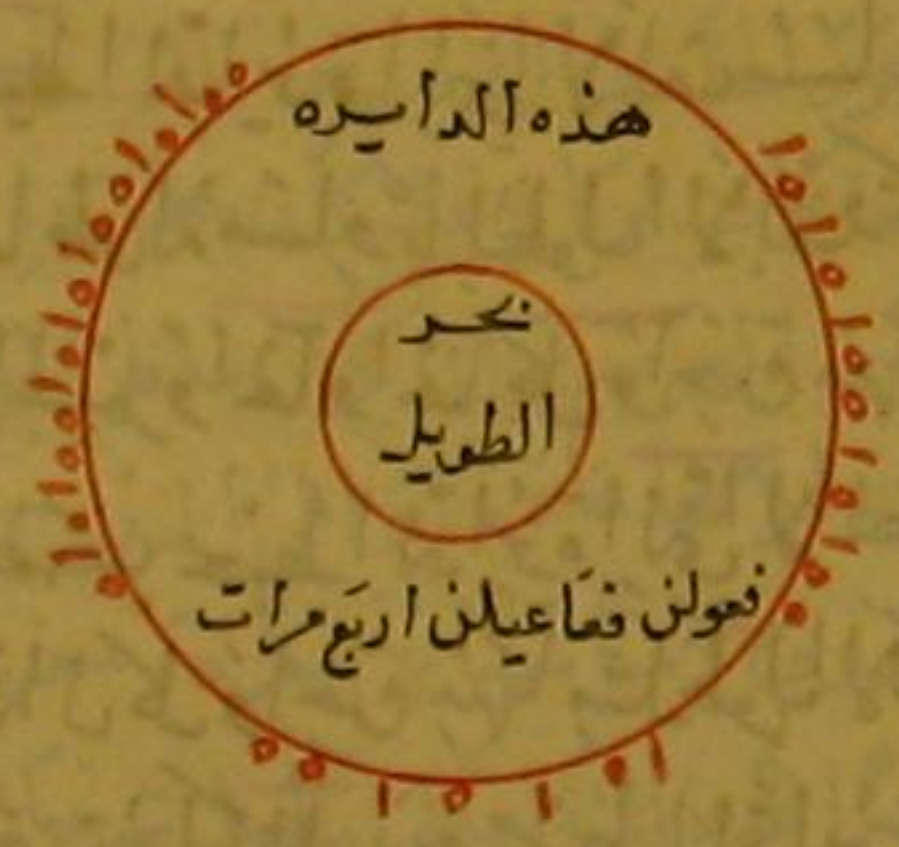 هذه الدايره
بحر
الطويل
فعولن فعَاعيلن اربَع مرات